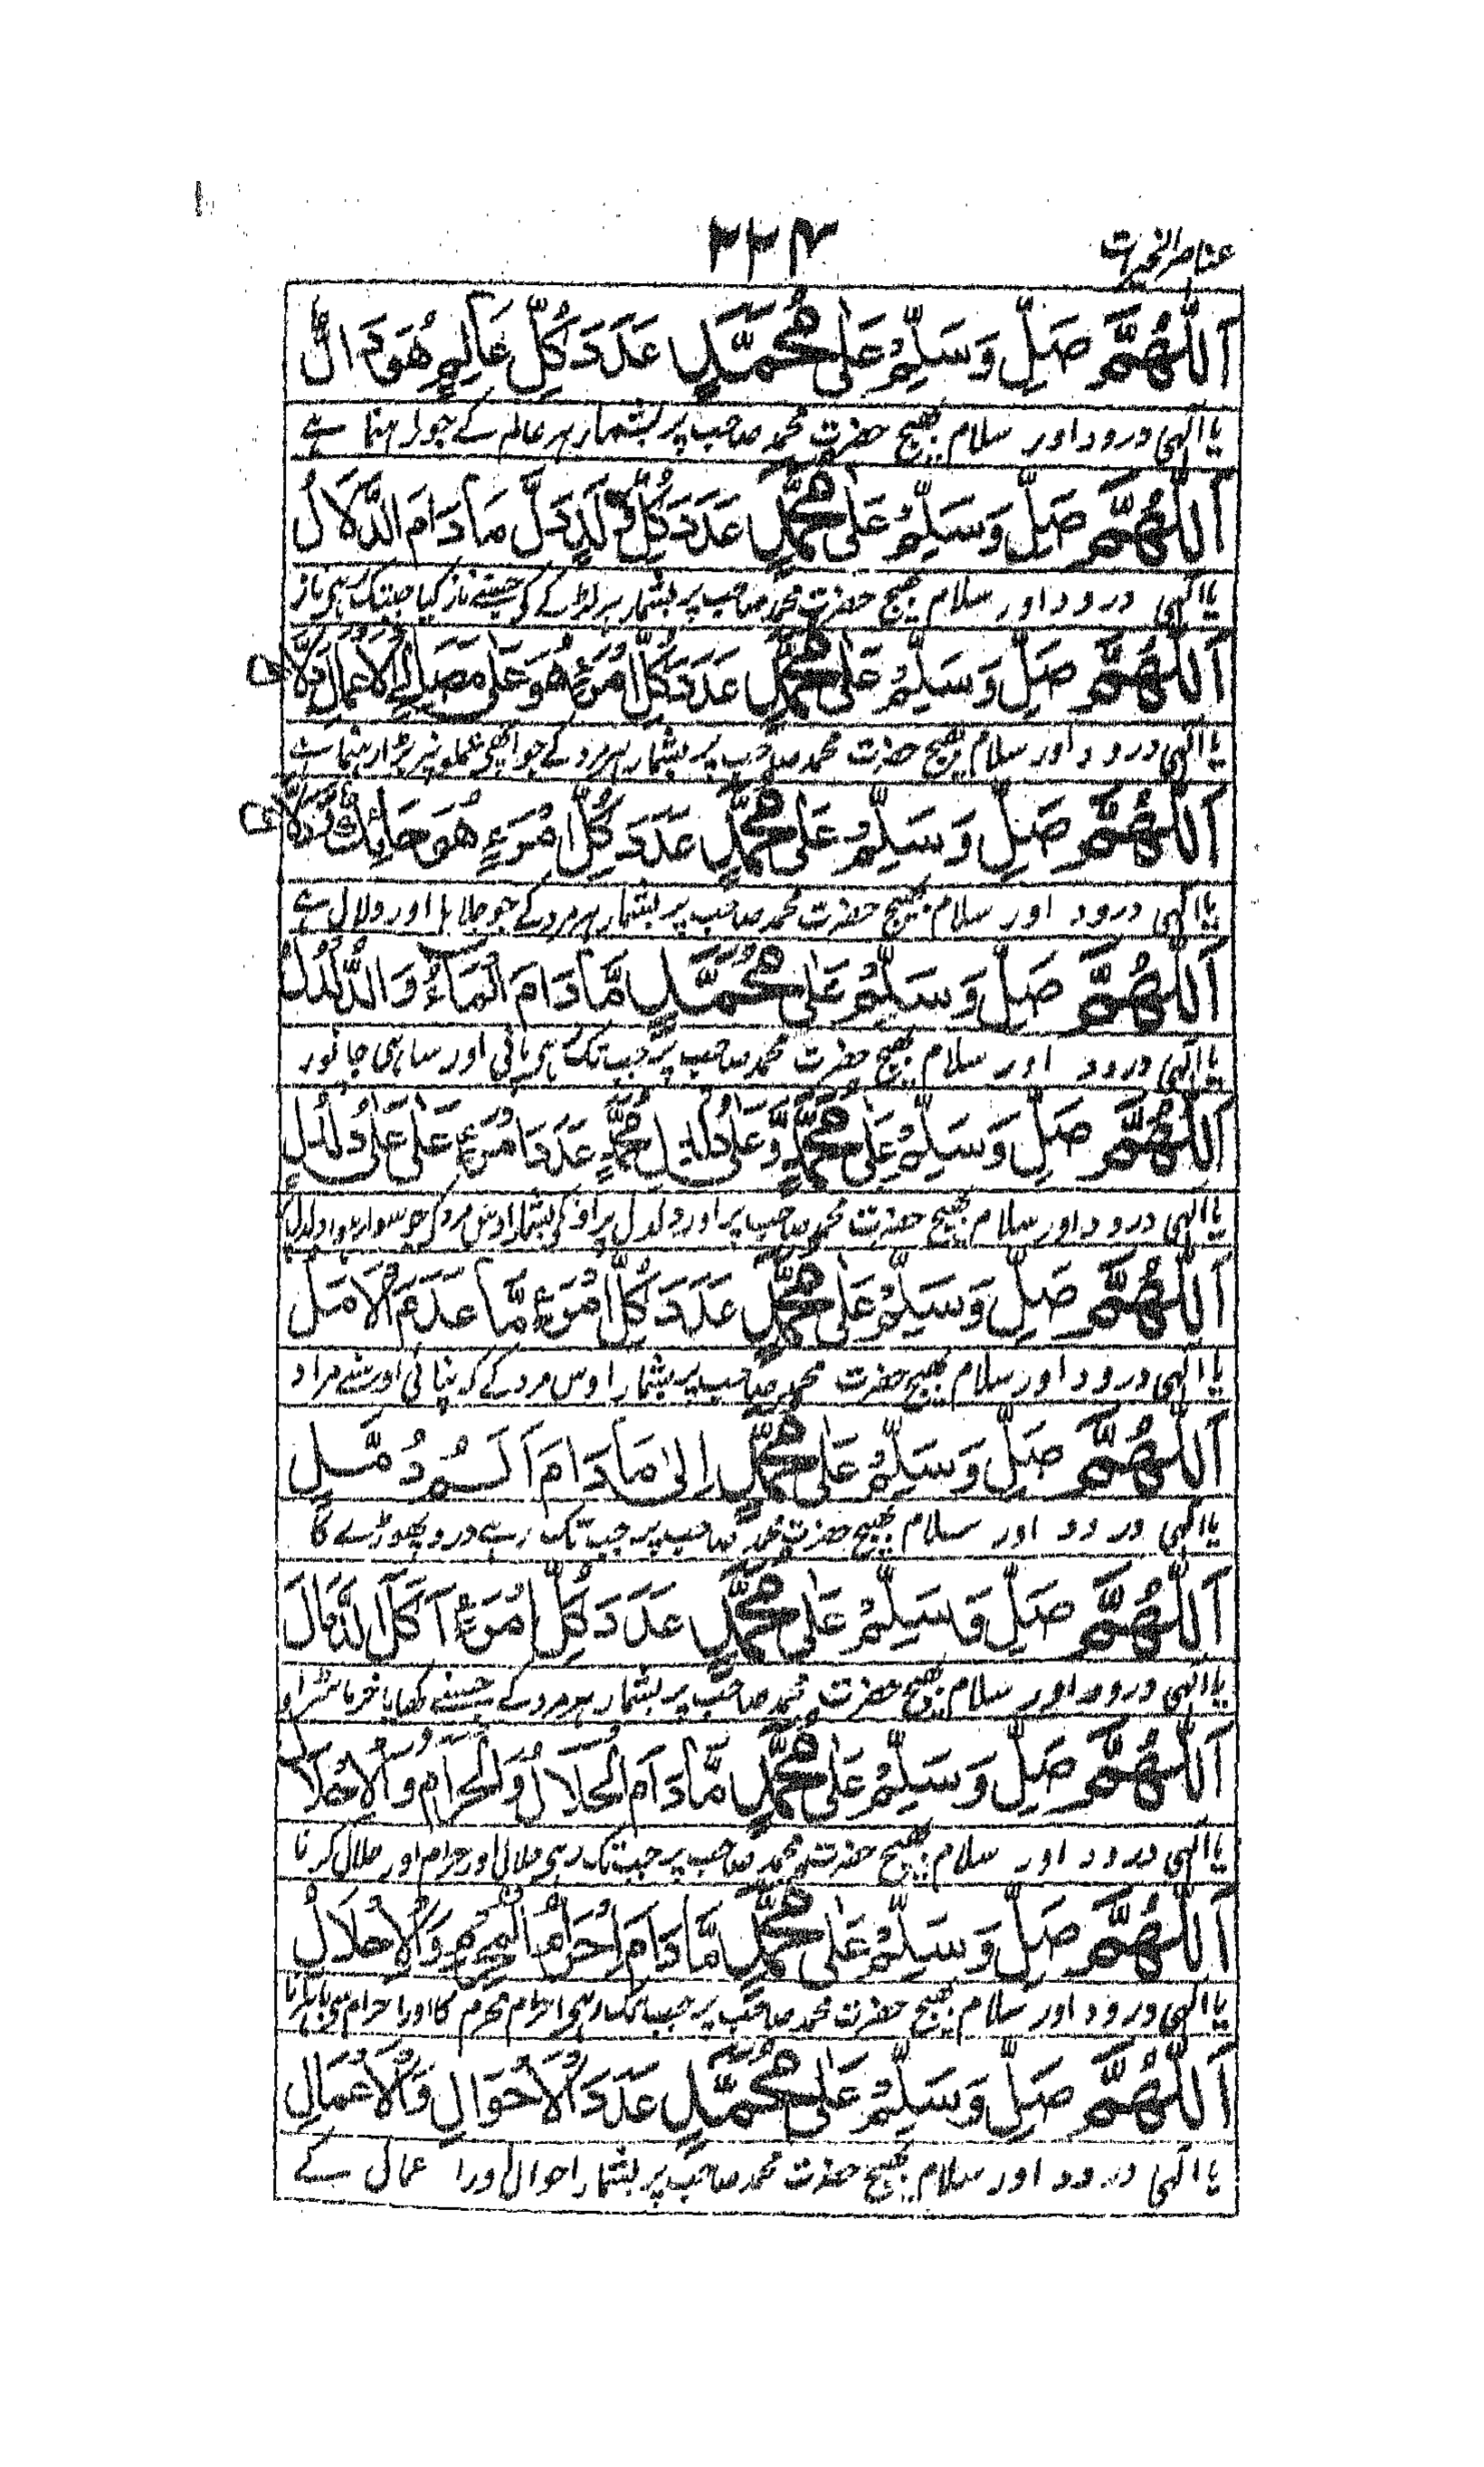 عناصر الخیرات
۲۲۴
اَللّٰهُمَّ صَلِّ وَسَلِّمْ عَلٰى مُحَمَّدٍ عَدَدَ كُلِّ عَالِمٍ هُوَ دَالٌّ
یا الٰہی درود اور سلام بھیج حضرت محمد صاحب پر بشمار ہر عالم کے جو راہنما ہے
اَللّٰهُمَّ صَلِّ وَسَلِّمْ عَلٰى مُحَمَّدٍ عَدَدَ كُلِّ وَلَدٍ دَلَّ مَا دَامَ الدَّلَالُ
یا الٰہی درود اور سلام بھیج حضرت محمد صاحب پر بشمار ہر لڑکے کی جسنے ناز کیا جبتک رہی ناز
اَللّٰهُمَّ صَلِّ وَسَلِّمْ عَلٰى مُحَمَّدٍ عَدَدَ كُلِّ امْرَءٍ هُوَ عَلٰى مَصَالِحِ الْاَعْمَالِ
یا الٰہی درود اور سلام بھیج حضرت محمد صاحب پر بشمار ہر مرد کے جو اچھی عملونپر
اَللّٰهُمَّ صَلِّ وَسَلِّمْ عَلٰى مُحَمَّدٍ عَدَدَ كُلِّ امْرَءٍ هُوَ حَائِكٌ
یا الٰہی درود اور سلام بھیج حضرت محمد صاحب پر بشمار ہر مرد کے جو جلاہا اور دلال ہے
اَللّٰهُمَّ صَلِّ وَسَلِّمْ عَلٰى مُحَمَّدٍ مَّا دَامَ الْمَاءُ وَالدُّلْدُلُ
یا الٰہی درود اور سلام بھیج حضرت محمد صاحب پر جب تک ہی پانی اور ساہی جانور
اَللّٰهُمَّ صَلِّ وَسَلِّمْ عَلٰى مُحَمَّدٍ وَّعَلٰى دُلْدُلِ مُحَمَّدٍ عَدَدَ امْرَءٍ عَلٰى عَلٰى دُلْدُلٍ
یا الٰہی درود اور سلام بھیج حضرت محمد صاحب پر اور دلدل پر اونکی بشمار اوس مرد کی جو سوار ہوا دلدل
اَللّٰهُمَّ صَلِّ وَسَلِّمْ عَلٰى مُحَمَّدٍ عَدَدَ كُلِّ امْرَءٍ مَّا عَدَمَ الْاَمَلَ
یا الٰہی درود اور سلام بھیج حضرت محمد صاحب پر بشمار اوس مرد کے کہ نپائی اوسنے مراد
اَللّٰهُمَّ صَلِّ وَسَلِّمْ عَلٰى مُحَمَّدٍ اِلٰى مَا دَامَ اَلَمُ دُمَّلٍ
یا الٰہی درود اور سلام بھیج حضرت محمد صاحب پر جب تک رہے درد پھوڑے کا
اَللّٰهُمَّ صَلِّ وَسَلِّمْ عَلٰى مُحَمَّدٍ عَدَدَ كُلِّ امْرَءٍ اَكَلَ الدَّمَالَ
یا الٰہی درود اور سلام بھیج حضرت محمد صاحب پر بشمار ہر مرد کے جسنے کھایا خرما سڑا
اَللّٰهُمَّ صَلِّ وَسَلِّمْ عَلٰى مُحَمَّدٍ مَّا دَامَ الْحَلَالُ وَالْحَرَامُ وَالْاِحْلَالُ
یا الٰہی درود اور سلام بھیج حضرت محمد صاحب پر جبتک رہی حلال اور حرام اور حلال کرنا
اَللّٰهُمَّ صَلِّ وَسَلِّمْ عَلٰى مُحَمَّدٍ مَّا دَامَ اِحْرَامُ الْمُحْرِمِ وَالْاِحْلَالُ
یا الٰہی درود اور سلام بھیج حضرت محمد صاحب پر جب تک رہی احرام محرم کا اور احرام سی باہر
اَللّٰهُمَّ صَلِّ وَسَلِّمْ عَلٰى مُحَمَّدٍ عَدَدَ الْاَحْوَالِ وَالْاَعْمَالِ
یا الٰہی درود اور سلام بھیج حضرت محمد صاحب پر بشمار احوال اور اعمال کے